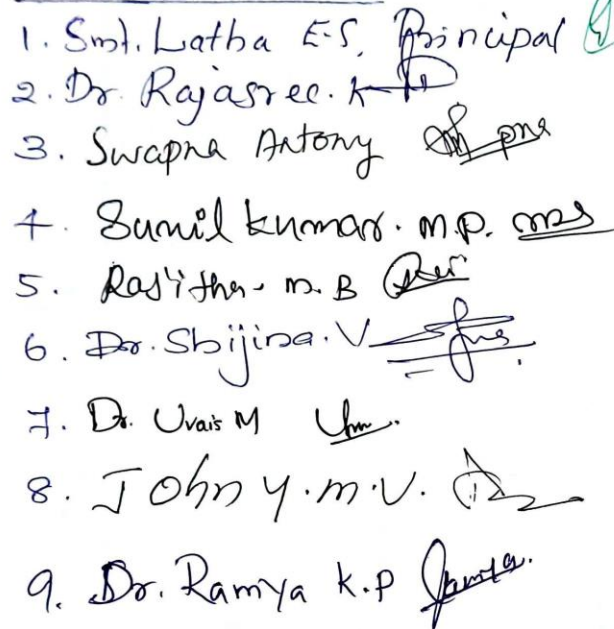 1. Smt. Latha E.S, Principal
2. Dr. Rajasree. K
3. Swapna Antony
4. Sunil kumar. m.p.
5. Rajitha. m. B
6. Dr. Shijina. V
7. Dr. Uvais M
8. Johny. m. v.
9. Dr. Ramya k.p